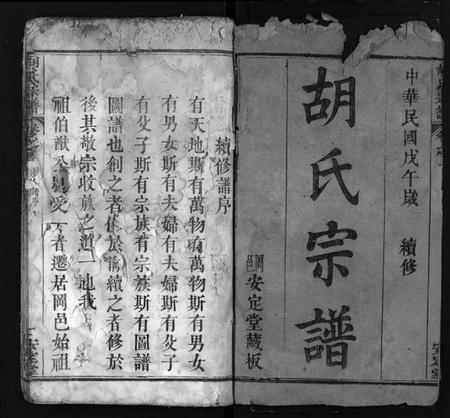 中華民國戊午歲　續修
胡氏宗譜
岡邑
安定堂藏板
續修譜序
有天地斯有萬物有萬物斯有男女
有男女斯有夫婦有夫婦斯有父子
有父子斯有宗族有宗族斯有圖譜
圖譜也創之者修於前續之者修於
後其敬宗收族之道一也我
祖伯猷公見愛者遷居岡邑始祖